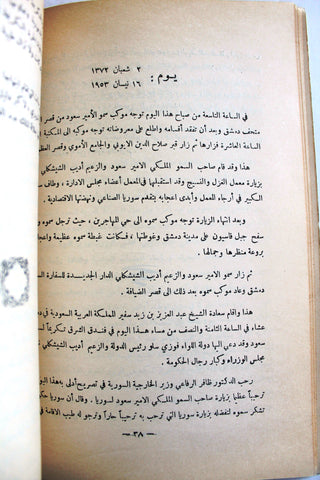 ٢ شعبان ١٣٧٢
يوم :
١٦ نيسان ١٩٥٣
في الساعة التاسعة من صباح هذا اليوم توجه موكب سمو الأمير سعود من قصر
متحف دمشق وبعد أن تفقد أقسامه واطلع على معروضاته توجه موكبه الى المكتبة
الساعة العاشرة فزارها ثم زار قبر صلاح الدين الايوبي والجامع الأموي وقصر العظم
هذا وقد قام صاحب السمو الملكي الامير سعود والزعيم أديب الشيشكلي
بزيارة معمل الغزل والنسيج وقد استقبلها في المعمل أعضاء مجلس الادارة ، وطاف س
الكبير في أرجاء المعمل وأبدى اعجابه بتقدم سوريا الصناعي ونهضتها الاقتصادية .
وبعد انتهاء الزيارة توجه موكب سموه الى حي المهاجرين ، حيث ترجل سموه و
سفح جبل قاسيون على مدينة دمشق وغوطتها ، فكانت غبطة سموه عظيمة واعجا
بروعة منظرها وجمالها .
ثم زار سمو الامير سعود والزعيم أديب الشيشكلي الدار الجديدة للسفارة الس
دمشق وعاد موكب سموه بعد ذلك الى قصر الضيافة .
هذا وأقام سعادة الشيخ عبد العزيز بن زيد سفير المملكة العربية السعودية في دم
عشاء في الساعة الثامنة والنصف من مساء هذا اليوم في فندق الشرق تكريماً لس
سعود وقد دعي اليها دولة اللواء فوزي سلو رئيس الدولة والزعيم أديب الشيشكلي
مجلس الوزراء وكبار رجال الحكومة .
رحب الدكتور ظافر الرفاعي وزير الخارجية السورية في تصريح أدلى به هذا اليوم
ترحيباً عظيما بزيارة صاحب السمو الملكي الامير سعود لسوريا . وقال أن سوريا حكو
تشكر سموه لتفضله بزيارة سوريا التي ترحب به ترحيباً حاراً وترجو له طيب الاقامة في
— ٣٨ —